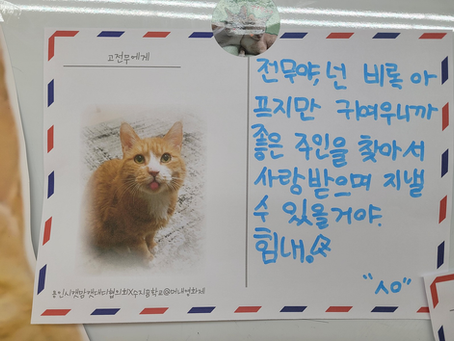 고전무에게
전무야, 넌 비록 아
프지만 귀여우니까
좋은 주인을 찾아서
사랑받으며 지낼
수 있을거야.
힘내!
"ㅅㅇ"
용인시캣맘캣대디협의회X수지꿈학교@머내영화제